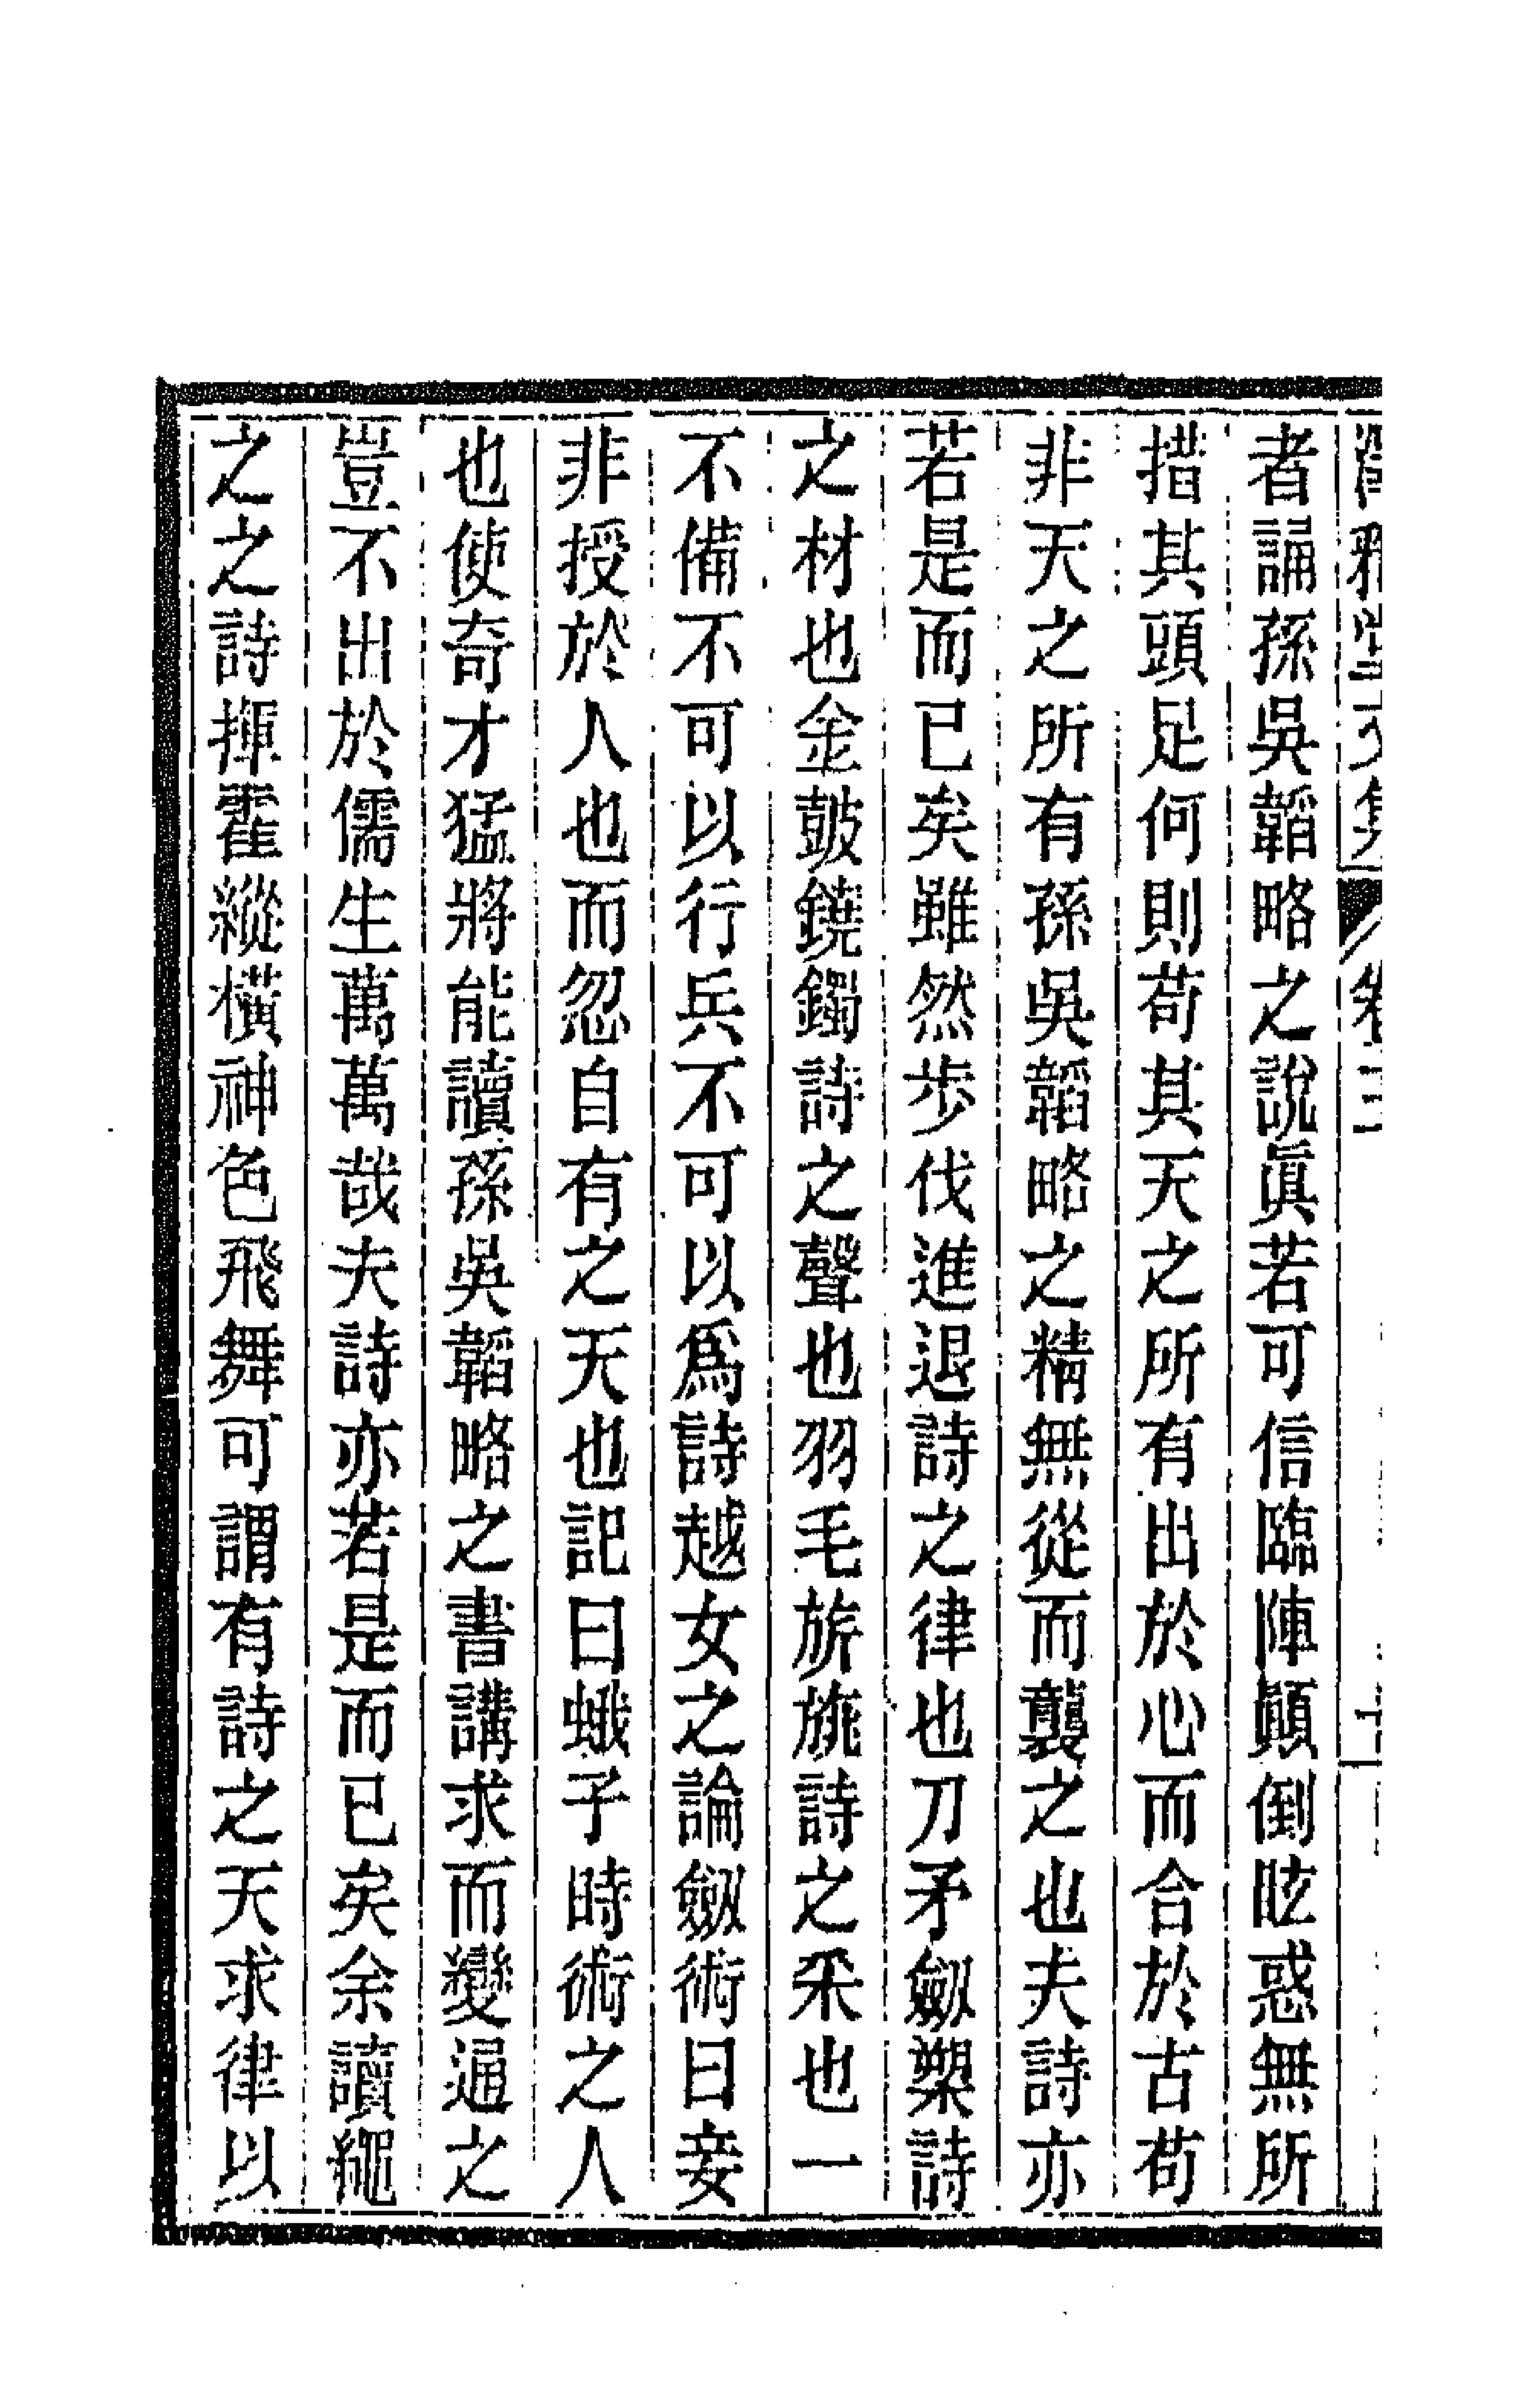 者誦孫吳韜略之說眞若可信臨陣顚倒眩惑無所
措其頭足何則苟其天之所有出於心而合於古苟
非天之所有孫吳韜略之精無從而襲之也夫詩亦
若是而已矣雖然步伐進退詩之律也刀矛劒槊詩
之材也金鼓鐃鐲詩之聲也羽毛旂旐詩之采也一
不備不可以行兵不可以爲詩越女之論劒術曰妾
非授於人也而忽自有之天也記曰蛾子時術之人
也使奇才猛將能讀孫吳韜略之書講求而變通之
豈不出於儒生萬萬哉夫詩亦若是而已矣余讀繩
之之詩揮霍縱橫神色飛舞可謂有詩之天求律以